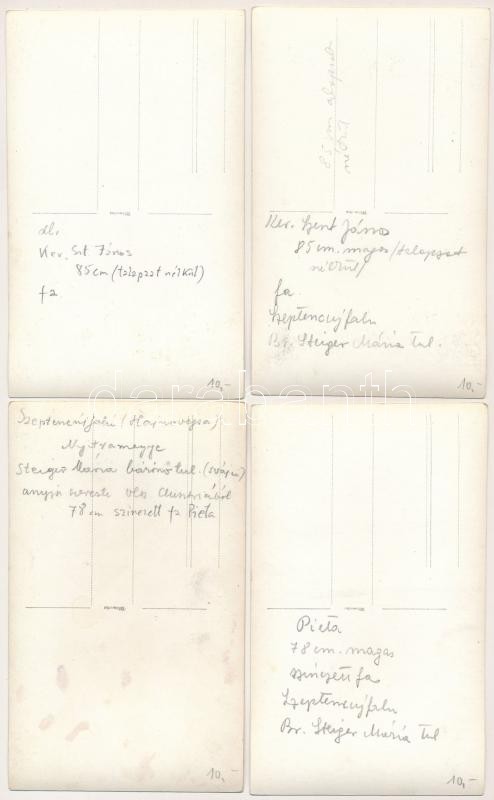 Ker. Szt. János
85 cm (talapzat nélkül)
fa
10,-
85 cm talapzat
nélkül
Ker. Szent János
85 cm. magas /talapzat
nélkül/
fa.
Szeptencújfalu
Br. Steiger Mária tul.
10,-
Szeptencújfalu
Nyitramegye
Steiger Mária bárónő tul.
anyja szerezte Ausztriából
78 cm színezett fa Pieta
10,-
Pieta
78 cm. magas
színezett fa
Szeptencújfalu
Br. Steiger Mária tul
10,-
darabanth